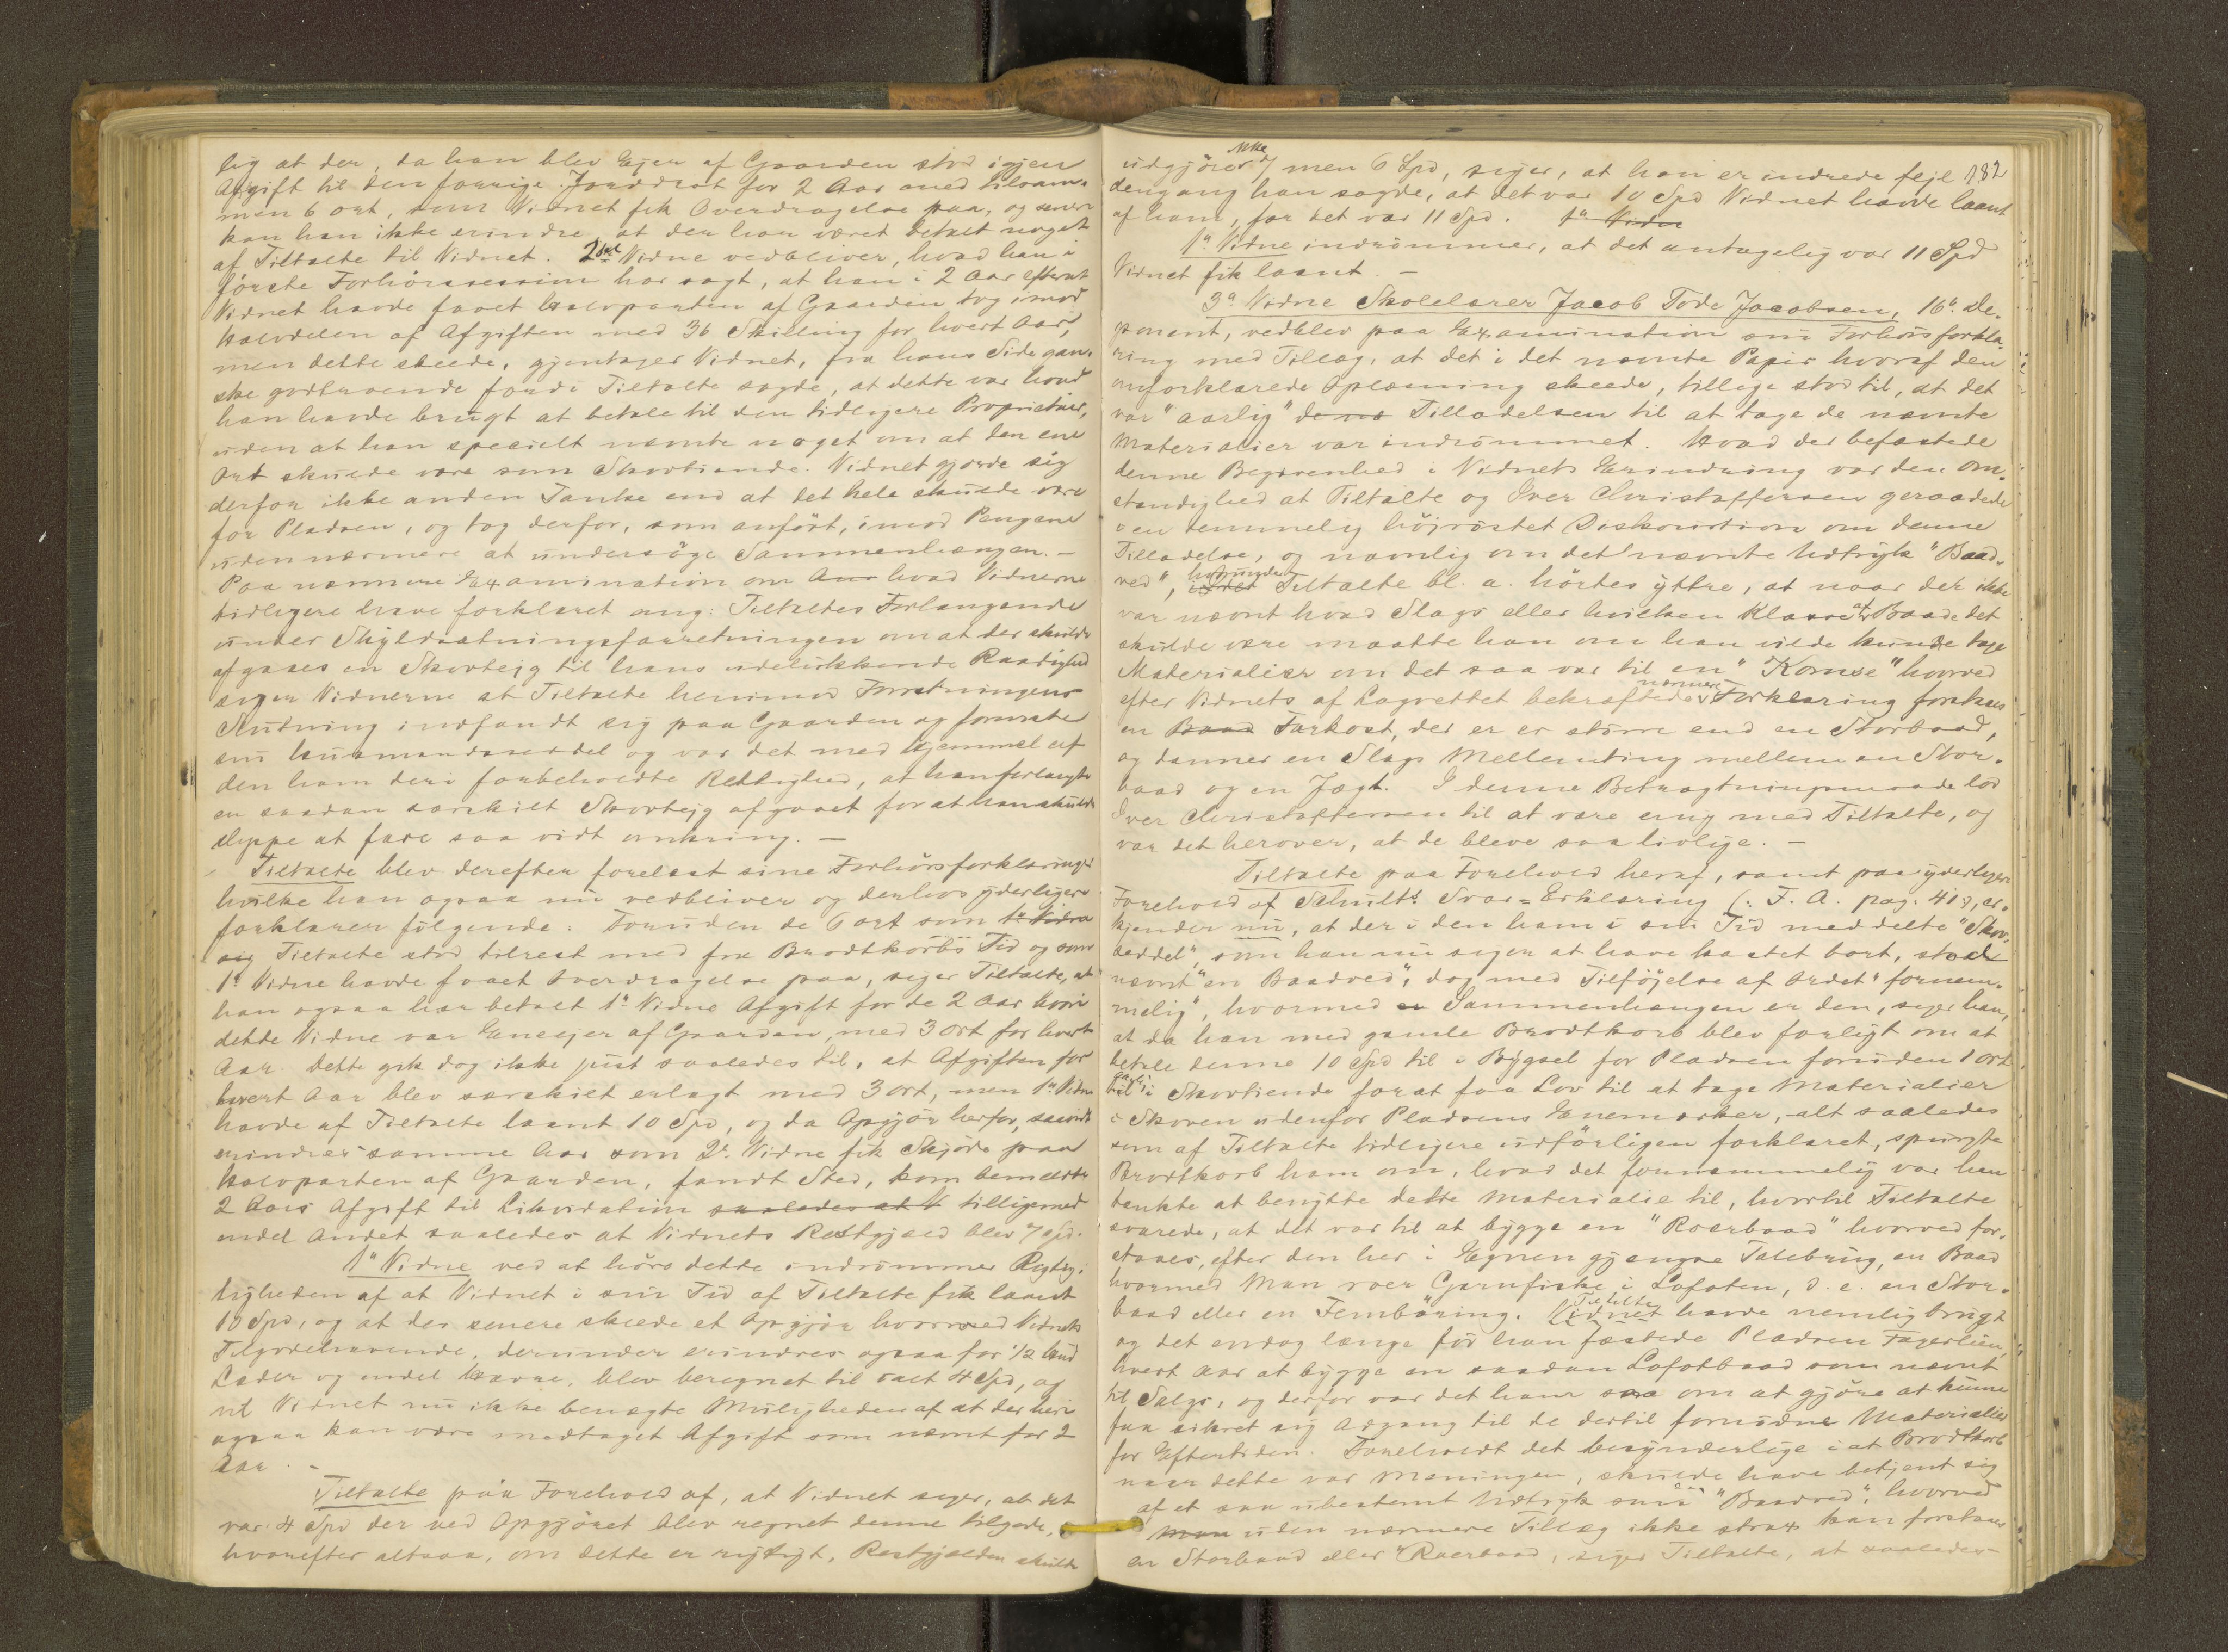 lig at der, da han blev Ejer af Gaarden stod igjen
Afgift til den forrige Jorddrot for 2 Aar med tilsam-
men 6 ort, som Vidnet fik Overdragelse paa, og senere
kan han ikke erindre, at der har været betalt noget
af Tiltalte til Vidnet. 2det Vidne vedbliver, hvad han i
første Forhørssession har sagt, at han i 2 Aar efterat
Vidnet havde faaet Halvparten af Gaarden tog imod
Halvdelen af Afgiften med 36 Skilling for hvert Aar,
men dette skede, gjentager Vidnet, fra hans Side gan-
ske godtroende fordi Tiltalte sagde, at dette var hvad
han havde brugt at betale til den tidligere Proprietær,
uden at han specielt nævnte noget om at den ene
Ort skulde være som Skovtiende. Vidnet gjorde sig
derfor ikke anden Tanke end at det hele skulde være
for Pladsen, og tog derfor, som anført, imod Pengene
uden nærmere at undersøge Sammenhængen. –
Paa nærmere Examination om hvad Vidnerne
tidligere have forklaret ang: Tiltaltes Forlangende
under Skyldsætningsforretningen om at der skulde
afgaaes en Skovtejg til hans udelukkende Raadighed
siger Vidnerne at Tiltalte henimod Forretningens
Slutning indfandt sig paa Gaarden og foreviste
sin Husmandsseddel og var det med Hjemmel af
den ham deri forbeholdte Rettighed, at han forlangte
en saadan særskilt Skovtejg afgaaet for at han skulde
slippe at fare saa vidt omkring. –
Tiltalte blev derefter forelæst sine Forhørsforklaringer
hvilke han ogsaa nu vedbliver og derhos yderligere
forklarer følgende: Foruden de 6 ort som 1ste Vidne
sig Tiltalte stod tilrest med fra Brodtkorbs Tid og som
1ste Vidne havde faaet Overdragelse paa, siger Tiltalte, at
han ogsaa har betalt 1ste Vidne Afgift for de 2 Aar hvori
dette Vidne var Eneejer af Gaarden, med 3 Ort for hvert
Aar. Dette gik dog ikke just saaledes til, at Afgiften for
hvert Aar blev særskilt erlagt med 3 ort, men 1ste Vidne
havde af Tiltalte laant 10 Spd, og da Opgjør herfor, saavidt
erindres samme Aar som 2det Vidne fik Skjøde paa
Halvparten af Gaarden, fandt Sted, kom bemeldte
2 Aars Afgift til Likvidation saaledes at V tilligemed
endel Andet saaledes at Vidnets Restgjæld blev 7 Spd.
1ste Vidne ved at høre dette indrømmer Rigtig-
ligheden af at Vidnet i sin Tid af Tiltalte fik laant
10 Spd, og at der senere skede et Opgjør hvorved Vidnets
Tilgodehavende, derunder erindres ogsaa for 1/2 Hud
Læder og endel Havre, blev beregnet til 4 Spd, og
vil Vidnet nu ikke benægte Muligheden af at der heri
ogsaa kan være medtaget Afgift som nævnt for 2
Aar. –
Tiltalte paa Forehold af, at Vidnet siger, at det
var 4 Spd der ved Opgjøret blev regnet denne tilgode,
hvorefter altsaa, om dette er rigtigt, Restgjælden skulde
182
udgjøre ikke 7 men 6 Spd, siger, at han erindrede fejl
dengang han sagde, at det var 10 Spd Vidnet havde laant
af ham, for det var 11 Spd. 1ste Vidne
1ste Vidne indrømmer, at det antagelig var 11 Spd
Vidnet fik laant. –
3die Vidne Skolelærer Jacob Tode Jacobsen, 16de De-
ponent, vedblev paa Examination sin Forhørsforkla-
ring med Tillæg, at det i det nævnte Papir hvoraf den
omforklarede Oplæsning skeede, tillige stod til, at det
var "aarlig" Tilladelsen til at tage de nævnte
Materialier var indrømmet. Hvad der befæstede
denne Begivenhed i Vidnets Erindring var den Om-
stændighed at Tiltalte og Iver Christoffersen geraadede
i en temmelig højrøstet Diskussion om denne
Tilladelse, og navnlig om det nævnte Udtryk "Baad-
ved", hvorunder Tiltalte bl. a. hørtes yttre, at naar der ikke
var nævnt hvad Slags eller hvilken Klasse af Baade det
skulde være maatte han om han vilde kunde tage
Materialier om det saa var til en "Komse" hvorved
efter Vidnets af Lagrettet bekræftede nærmere Forklaring forstaaes
en Baad Farkost, der er er større end en Storbaad,
og danner en Slags Mellemting mellem en Stor-
baad og en Jægt. I denne Betragtningsmaade lod
Iver Christoffersen til at være enig med Tiltalte, og
var det herover, at de bleve saa livlige. –
Tiltalte paa Forehold heraf, samt paa yderligere
Forehold af Schults Svar-Erklæring (: F. A. pag. 41:), er-
kjender nu, at der i den ham i sin Tid meddelte "Skov-
seddel", som han nu siger at have kastet bort, stod
nævnt "en Baadved", dog med Tilføjelse af Ordet "fornem-
melig", hvormed en Sammenhængen er den, siger han,
at da han med gamle Brodtkorb blev forligt om at
betale denne 10 Spd til i Bygsel for Pladsen foruden 1 Ort
til i Skovtiende for at faa Lov til at tage Materialier
i Skoven udenfor Pladsens Enemærker, alt saaledes
som af Tiltalte tidligere udførligen forklaret, spurgte
Brodtkorb ham om, hvad det fornemmelig var han
tænkte at benytte dette Materialie til, hvortil Tiltalte
svarede, at det var til at bygge en "Roerbaad" hvorved for-
staaes, efter den her i Egnen gjængse Talebrug, en Baad
hvormed Man roer Garnfiske i Lofoten, d. e. en Stor-
baad eller en Fembøring. Vidnet Tiltalte havde nemlig brugt
og det endog længe før han fæstede Pladsen Fagerlien,
hvert Aar at bygge en saadan Lofotbaad som nævnt
til Salgs, og derfor var det ham saa om at gjøre at kunne
faa sikret sig Adgang til de dertil fornødne Materialier
for Eftertiden. Foreholdt det besynderlige i at Brodtkorb
naar dette var Meningen, skulde have betjent sig
af et saa ubestemt Udtryk som "Baadved", hvorved
Man uden nærmere Tillæg ikke strax kan forstaaes
en Storbaad eller "Roerbaad, siger Tiltalte, at saaledes